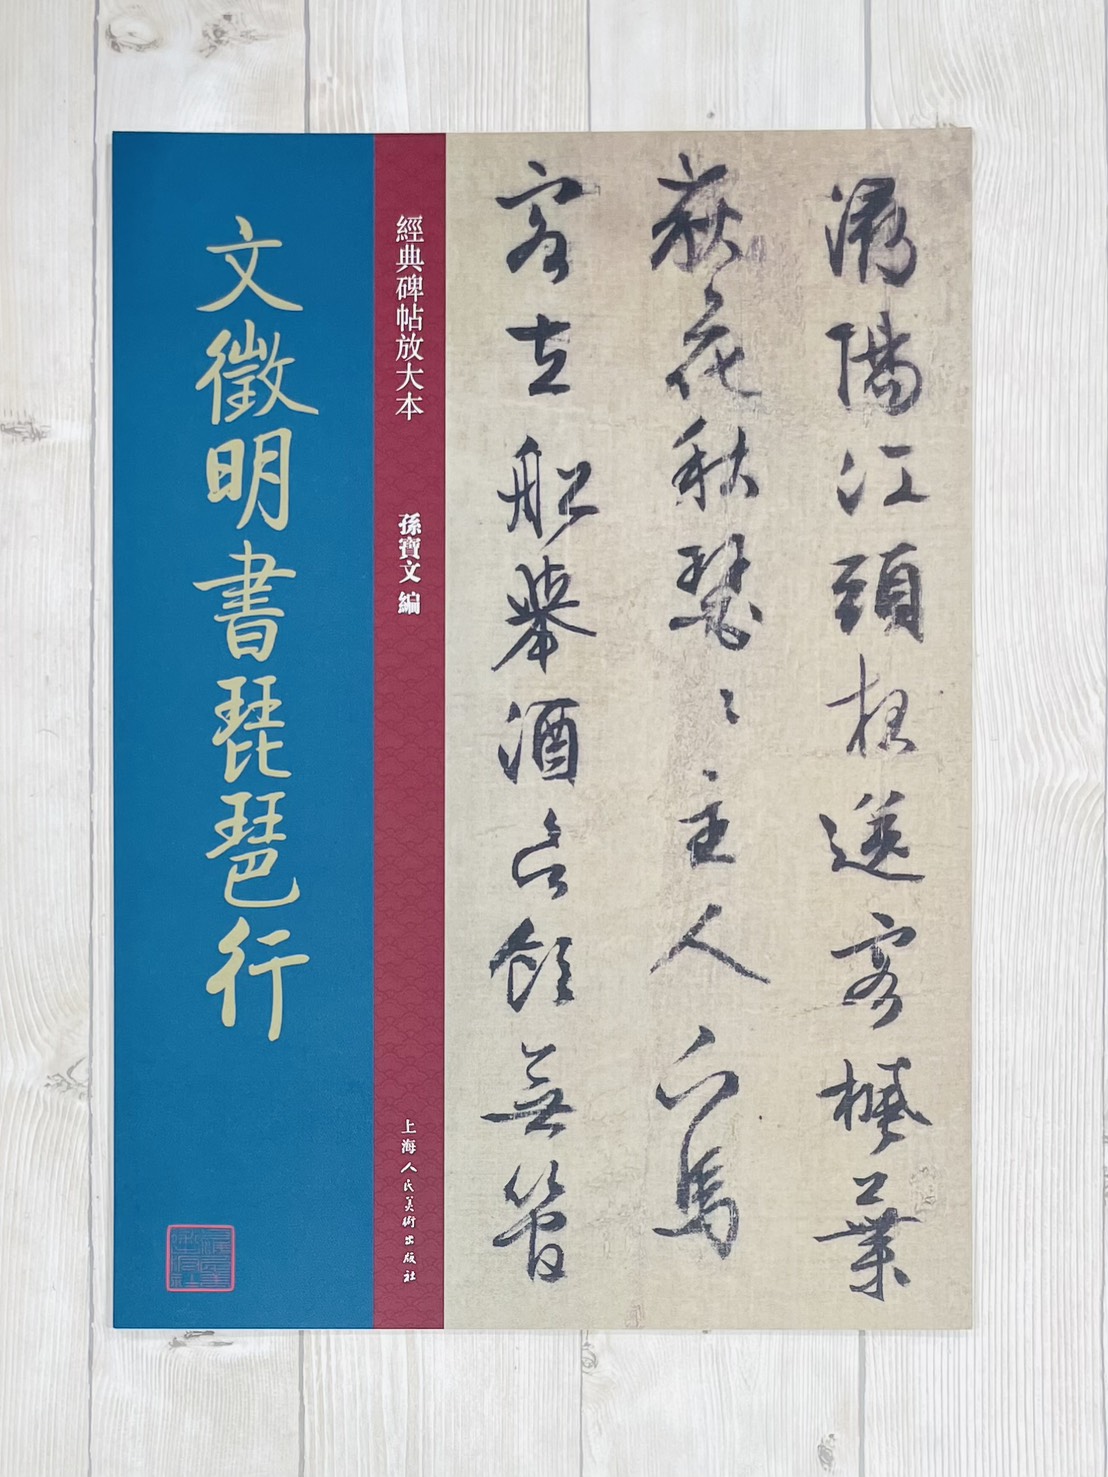 文徵明書琵琶行
經典碑帖放大本
孫寶文 編
上海人民美術出版社
潯陽江頭夜送客楓葉
荻花秋瑟〻主人下馬
客在船舉酒欲飲無管